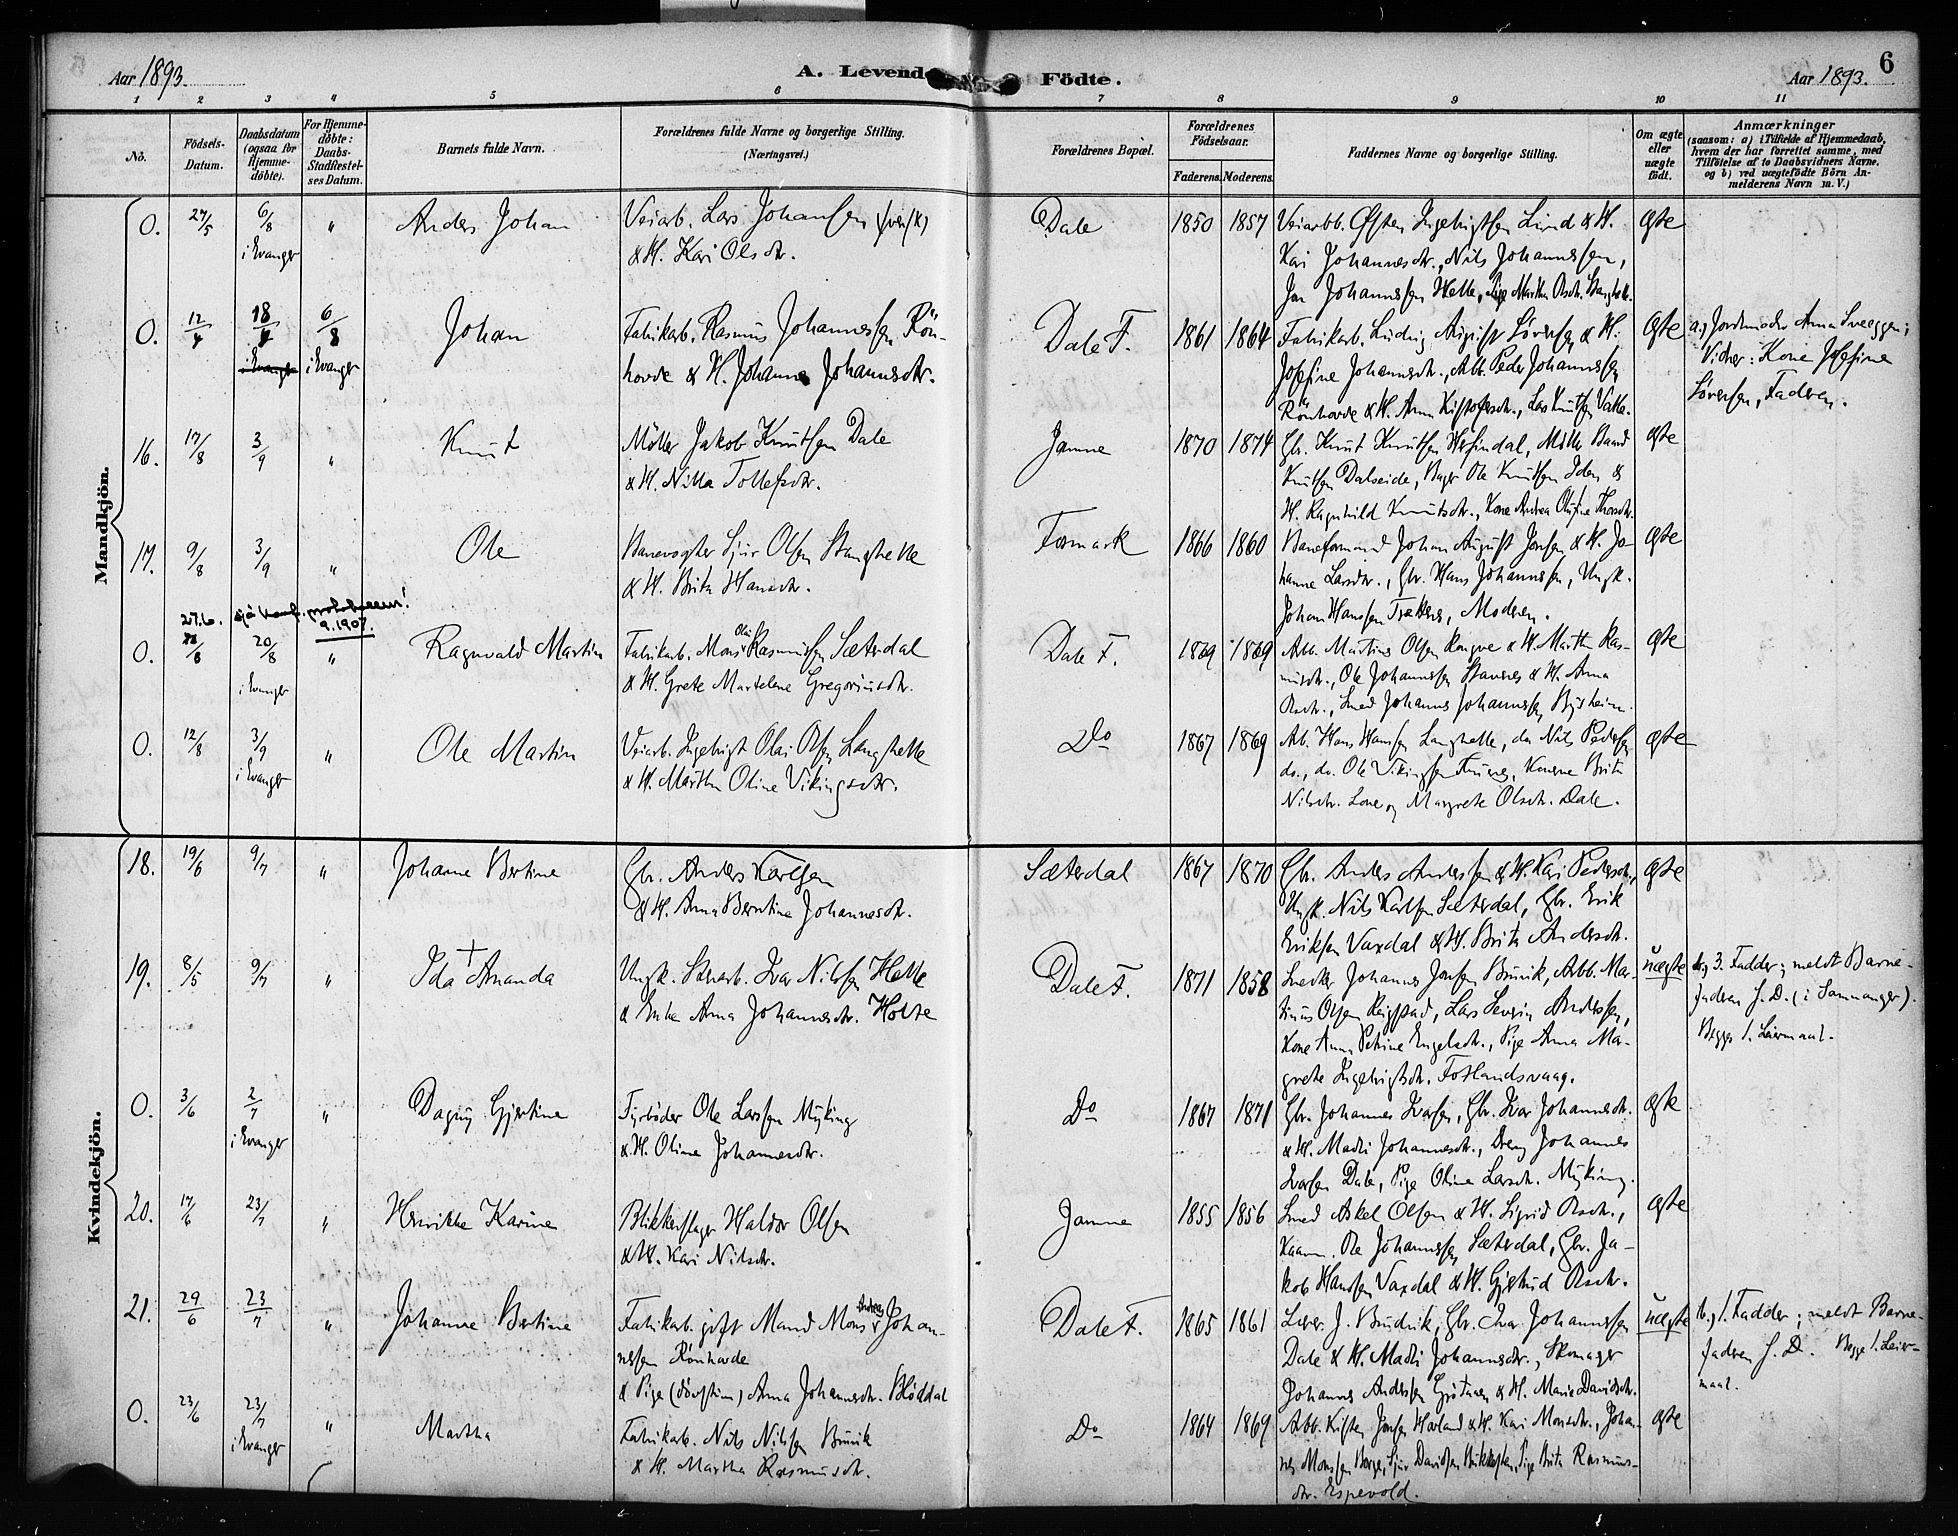 Aar 1893.
A. Levende Födte.
Aar 1893.
6
1 2 3 4 5 6 7 8 9 10 11
No.
Födsels-Datum.
Daabsdatum (ogsaa för Hjemme-döbte).
For Hjemme-döbte: Daabs-Stadfæstel-ses Datum.
Barnets fulde Navn.
Forældrenes fulde Navne og borgerlige Stilling. (Næringsvei.)
Forældrenes Bopæl.
Forældrenes Födselsaar.
Faderens. Moderens.
Faddernes Navne og borgerlige Stilling.
Om ægte eller uægte födt.
Anmærkninger
(saasom: a) i Tilfælde af Hjemmedaab, hvem der har forrettet samme, med Tilföielse af to Daabsvidners Navne. og b) ved uægtefödte Börn Anmelderens Navn m. V.)
Mandkjön.
0. 27/5 6/8 i Evanger " Anders Johan
Veiarb. Lars Johansen
& H. Kari Olsdtr.
Dale 1850 1857
Veiarbb. Østen Ingebrigtsen Lund & H.
Kari Johannesdtr., Nils Johannessen,
Johannessen Helle, Pige Martha Olsdtr.
ægte
0. 12/4 18/4 6/8 i Evanger Johan
Fabrikarb. Rasmus Johannessen Rön-
hovde & H. Johanne Johannsdtr.
Dale F. 1861 1864
Fabrikarb. Ludvig August Sörensen & H.
Josefine Johannsdtr., Arb. Peder Johannessen
Rönhovde & H. Anna Kristofersdtr., Lars Knutsen
ægte
a.) Jordemoder Anna
Vidner: Kone Josefine
Sörensen, Faderen.
16. 17/8 3/9 " Knut
Möller Jakob Knutsen Dale
& H. Nilla Tollefsdtr.
Jamne 1870 1874
Gbr. Knut Knutsen Hesjindal, Möller Baard
Knutsen Dalseide, Bager Ole Knutsen & 
H. Ragnhild Knutsdtr., Kone Andrea Olufine
ægte
17. 9/8 3/9 " Ole
Banevogter Sjur Olsen Stanghelle
& H. Brita Hansdtr.
Fosmark 1866 1860
Baneformand Johan August Jonsen & H. Jo-
hanne Larsdtr., Gbr. Hans Johannessen, Ungk.
Johan Hanssen Træknes, Moderen.
ægte
27.6. sjå konf. protokollen!
9.1907.
0. 20/8 i Evanger " Ragnvald Martin
Fabrikarb. Mons Olai Rasmussen Sæterdal
& H. Grete Martelene Gregoriusdtr.
Dale F. 1869 1869
Arb. Martinus Olsen & H. Martha Ras-
musdtr., Ole Johannessen Stavnes & H. Anna
Olsdtr., Smed Johannes Johannessen
ægte
0. 12/8 3/9 i Evanger " Ole Martin
Veiarb. Ingebrigt Olai Olsen Langhelle
& H. Martha Oline Vikingsdtr.
Do 1867 1869
Arb. Hans Hansen Langhelle, do Nils Pedersen
do., do. Ole Vikingsen, Konerne Brita
Nilsdtr. Lone og Margrete Olsdtr. Dale.
ægte
Kvindekjön.
18. 19/6 9/7 " Johanne Bertine
Gbr. Anders Karlsen
& H. Anna Berntine Johannesdtr.
Sæterdal 1867 1870
Gbr. Anders Anderssen & H. Kari Pedersdtr.,
Ungk. Nils Karlsen Sæterdal, Gbr. Erik
Eriksen Vaxdal & H. Brita Andersdtr.
ægte
19. 8/5 9/7 " Ida + Amanda
Ungk. Stenarb. Ivar Nilsen Helle
& Enke Anna Johannesdtr. Holte
Dale F. 1871 1858
Snedker Johannes Jonsen Bruvik, Arbb. Mar-
tinus Olsen, Lars Severin Anderssen,
Kone Anna Petrine Engelsdtr., Pige Anna Ma-
grete Ingebrigtsdtr. Fotlandsvaag.
uægte
b.) 3. Fadder; meldt Barne-
faderen S. D. (i Samnanger).
Begges 1. Leiermaal.
0. 3/6 2/7 i Evanger " Dagny Gjertine
Fyrböder Ole Larssen Myking
& H. Oline Johannesdtr.
Do 1867 1871
Gbr. Johannes Ivarsen, Gbr. Ivar Johannesen
& H. Madli Johannesdtr., Dreng Johannes
Ivarsen Dale, Pige Oline Larsdtr. Myking.
ægte
20. 17/6 23/7 " Henrikke Karine
Blikkenslager Haldor Olsen
& H. Kari Nilsdtr.
Jamne 1855 1856
Smed Askel Olsen & H. Sigrid Olsdtr.,
Ole Johannessen Sæterdal, Gbr. Ja-
kob Hanssen Vaxdal & H. Gjertrud Olsdtr.
ægte
21. 29/6 23/7 " Johanne Bertine
Fabrikarb. gift Mand Mons Andreas Johan-
nessen Rönhovde
& Pige (Dövstum) Anna Johannesdtr. Blöddal
Dale F. 1865 1861
Lærer J. Brudvik, Gbr. Ivar Johannessen
Dale & H. Madli Johannsdtr., Skomager
Johannes Anderssen & H. Marie Davidsdtr.
uægte
b.) 1. Fadder; meldt Barne-
faderen S. D. Begges 1. Leier-
maal.
0. 23/6 23/7 i Evanger " Martha
Fabrikarb. Nils Nilssen Bruvik
& H. Martha Rasmusdtr.
Do 1864 1869
Arb. Kristen Jonsen Havland & H. Kari Monsdtr., Johan-
nes Monssen Berge, Sjur Davidsen, Pige Brita Rasmus-
dtr. Espevold.
ægte